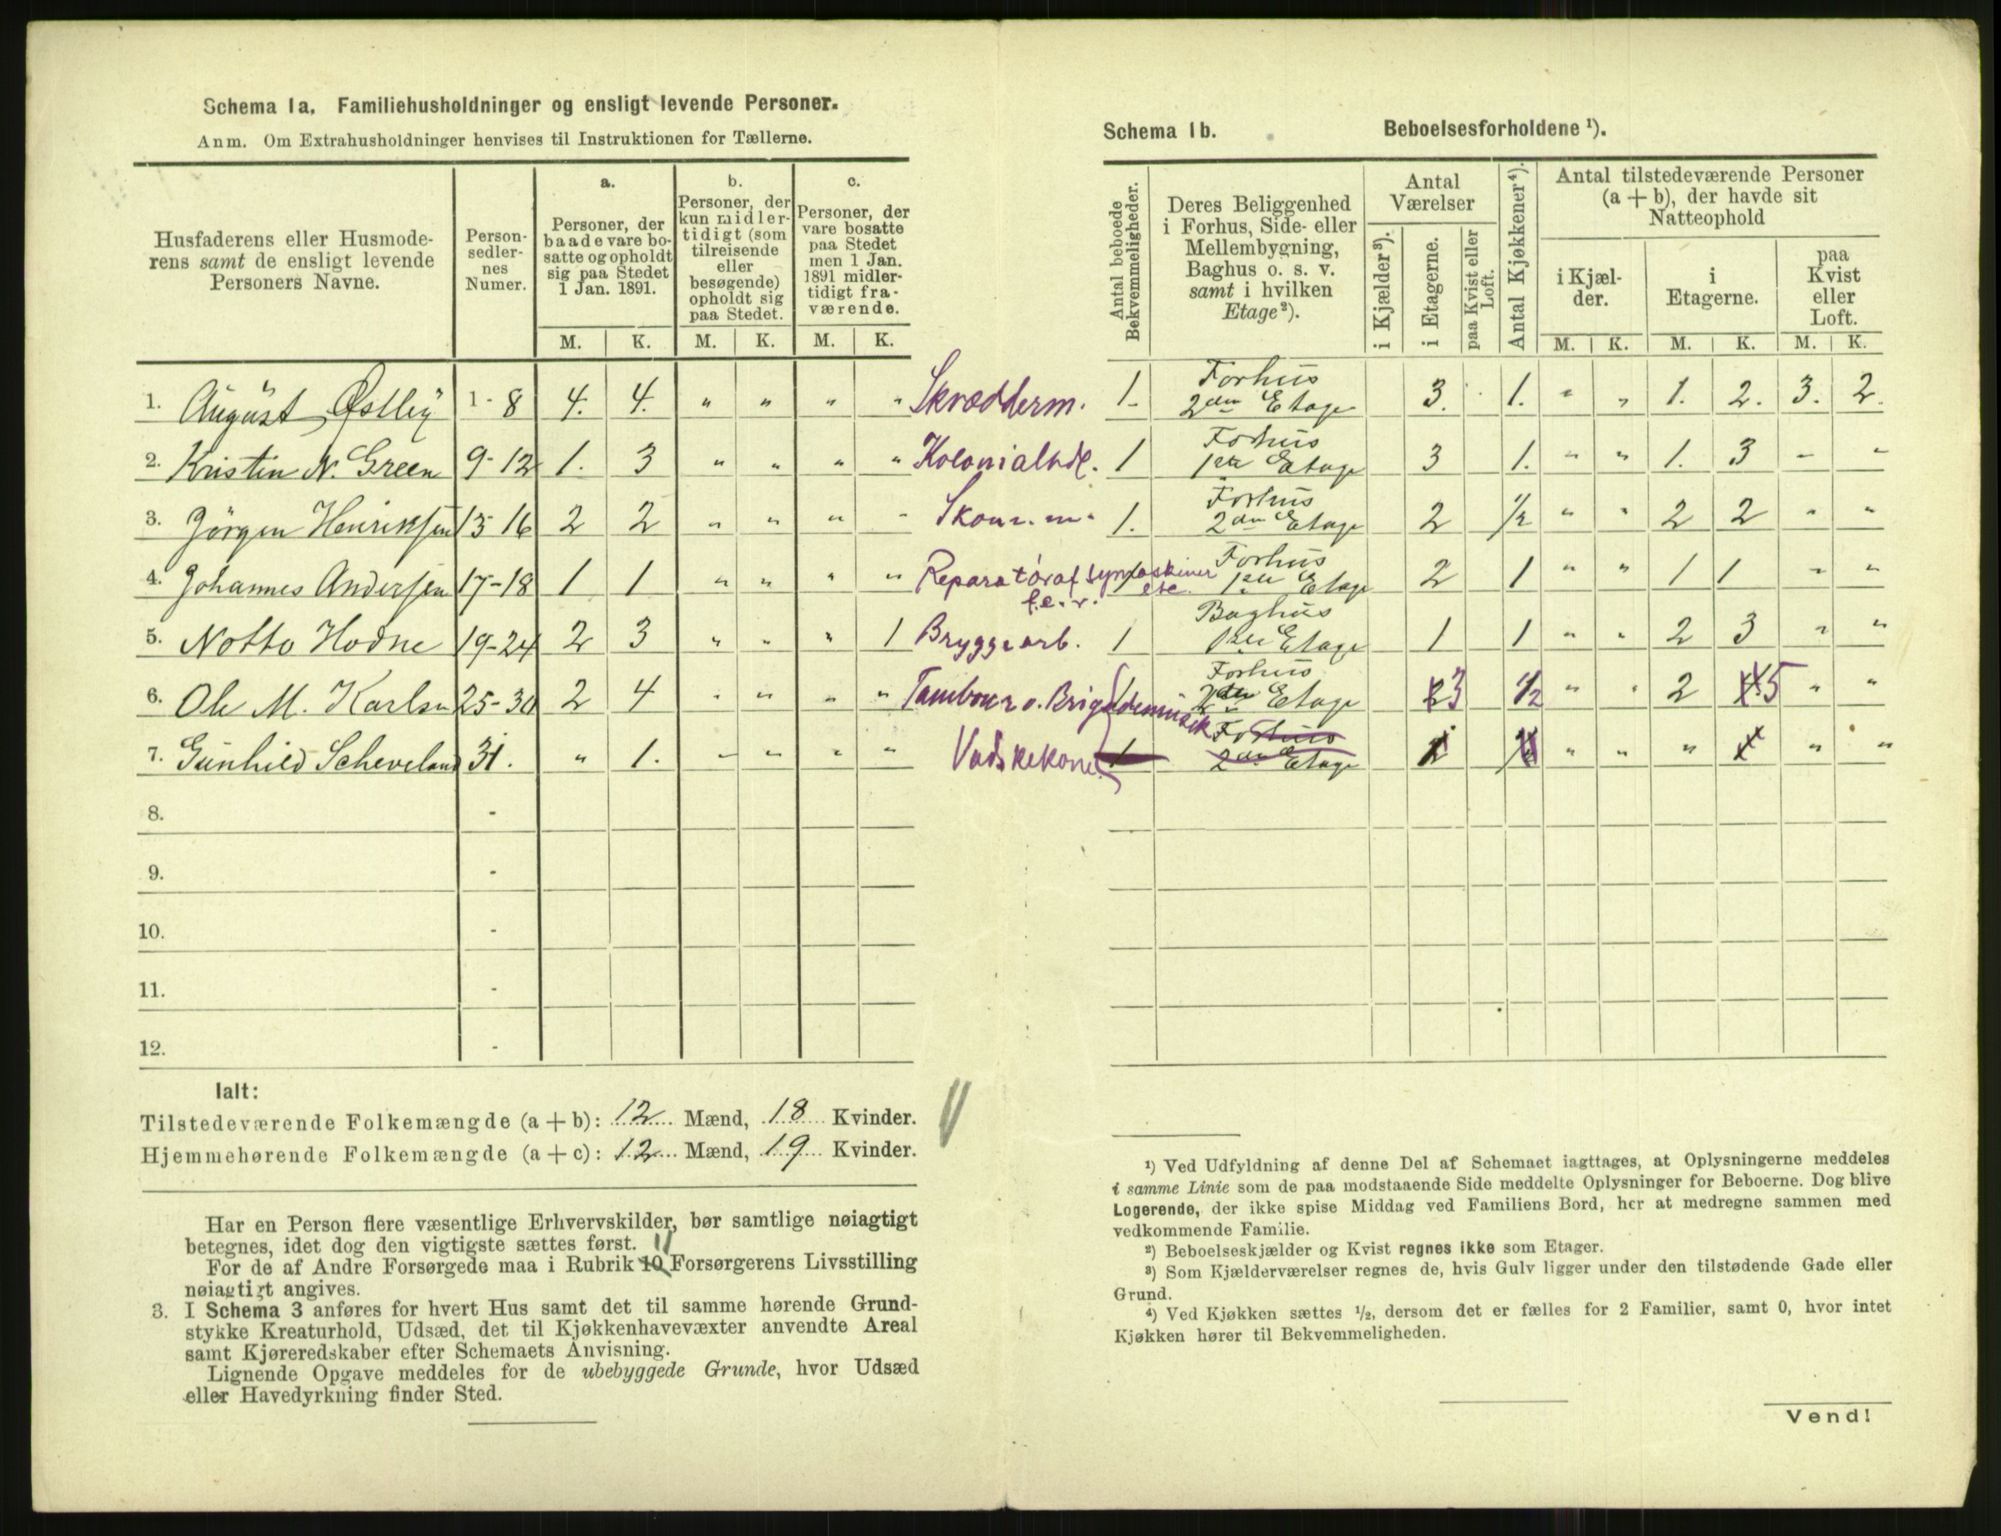 Schema 1a. Familiehusholdninger og ensligt levende Personer.
Anm. Om Extrahusholdninger henvises til Instruktionen for Tællerne.
Husfaderens eller Husmoderens samt de ensligt levende Personers Navne.
Personsedlernes Numer.
a. Personer, der baade vare bosatte og opholdt sig paa Stedet 1 Jan. 1891.
b. Personer, der kun midlertidigt (som tilreisende eller besøgende) opholdt sig paa Stedet.
c. Personer, der vare bosatte paa Stedet men 1 Jan. 1891 midlertidigt fraværende.
M. K. M. K. M. K.
1. August Østley 1-8 4. 4. " " " " Skrædderm.
2. Kristin N. Green 9-12 1. 3 " " " " Kolonialhdl.
3. Jörgen Henriksen 13-16 2 2 " " " " Skom. m.
4. Johannes Andersen 17-18 1 1 " " " " Reparatör af Symaskiner etc. f. e. r.
5. Notto Hodne 19-24 2 3 " " " 1 Bryggearb.
6. Ole M. Karlsen 25-30 2 4 " " " " Tambour v. Brigademusik
7. Gunhild Scheveland 31. " 1. " " " " Vadskekone
8. -
9. -
10. -
11. -
12. -
Ialt:
Tilstedeværende Folkemængde (a + b): 12 Mænd, 18 Kvinder.
Hjemmehørende Folkemængde (a + c): 12 Mænd, 19 Kvinder.
Har en Person flere væsentlige Erhvervskilder, bør samtlige nøiagtigt
betegnes, idet dog den vigtigste sættes først. 11
For de af Andre Forsørgede maa i Rubrik 10 Forsørgerens Livsstilling
nøiagtigt angives.
3. I Schema 3 anføres for hvert Hus samt det til samme hørende Grund-
stykke Kreaturhold, Udsæd, det til Kjøkkenhavevæxter anvendte Areal
samt Kjøreredskaber efter Schemaets Anvisning.
Lignende Opgave meddeles for de ubebyggede Grunde, hvor Udsæd
eller Havedyrkning finder Sted.
Schema 1b. Beboelsesforholdene ¹).
Antal beboede Bekvemmeligheder.
Deres Beliggenhed i Forhus, Side- eller Mellembygning, Baghus o. s. v. samt i hvilken Etage²).
Antal Værelser
i Kjælder³).
i Etagerne.
paa Kvist eller Loft.
Antal Kjøkkener⁴).
Antal tilstedeværende Personer (a + b), der havde sit Natteophold
i Kjælder.
i Etagerne.
paa Kvist eller Loft.
M. K. M. K. M. K.
1. Forhus 2den Etage 3. 1. " " 1. 2. 3. 2.
1 Forhus 1ste Etage 3 1. " " 1. 3 " "
1. Forhus 2den Etage 2 1/2 " " 2 2 " "
1 Forhus 1ste Etage 2 1 " " 1 1 " "
1 Baghus 1ste Etage 1 1 " " 2 3 " "
1 Forhus 2den Etage 3 1/2 " " 2 5 " "
1 Forhus 2den Etage " " " " "
¹) Ved Udfyldning af denne Del af Schemaet iagttages, at Oplysningerne meddeles
i samme Linie som de paa modstaaende Side meddelte Oplysninger for Beboerne. Dog blive
Logerende, der ikke spise Middag ved Familiens Bord, her at medregne sammen med
vedkommende Familie.
²) Beboelseskjælder og Kvist regnes ikke som Etager.
³) Som Kjælderværelser regnes de, hvis Gulv ligger under den tilstødende Gade eller
Grund.
⁴) Ved Kjøkken sættes ½, dersom det er fælles for 2 Familier, samt 0, hvor intet
Kjøkken hører til Bekvemmeligheden.
Vend!